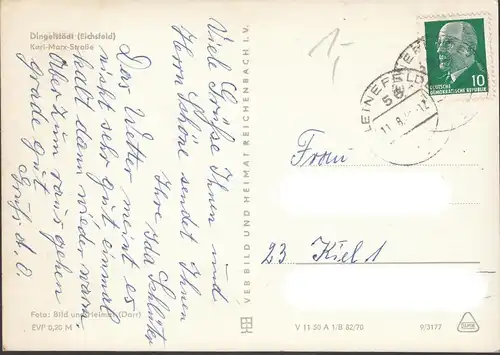 Dingelstädt (Eichsfeld)
Karl-Marx-Straße
Viele Grüße Ihnen und
Herrn Schöne sendet Ihnen
Ihre Ida Schlüter
Das Wetter meint es
nicht sehr gut einmal
kalt dann wieder warm.
Aber zum raus gehen
grade gut
Gruß A. O.
Foto: Bild und Heimat (Darr)
EVP 0,20 M
VEB BILD UND HEIMAT REICHENBACH I. V.
1,-
LEINEFELDE
11.8.
10
DEUTSCHE
DEMOKRATISCHE REPUBLIK
Frau
23 Kiel 1
V 11 50 A 1/B 82/70
9/3177